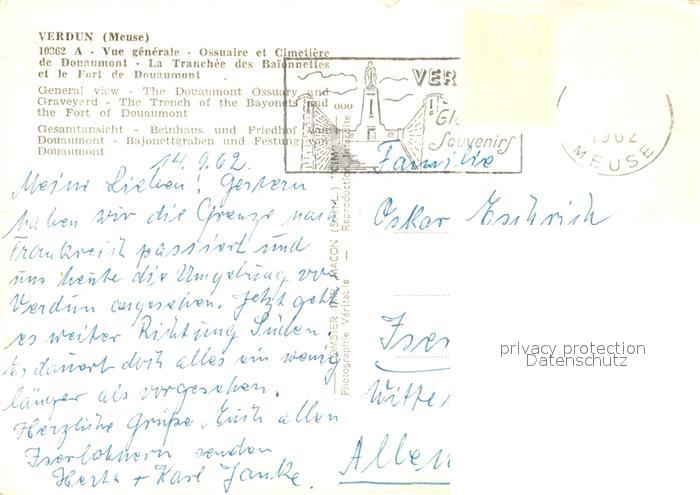 VERDUN (Meuse)
10362 A - Vue générale - Ossuaire et Cimetière
de Douaumont - La Tranchée des Baïonnettes
et le Fort de Douaumont
General view - The Douaumont Ossuary and
Graveyard - The Trench of the Bayonets and
the Fort of Douaumont
Gesamtansicht - Beinhaus und Friedhof
Douaumont - Bajonettgraben und Festung von
Douaumont
VER
Souvenirs
1962
MEUSE
14.9.62.
Meine Lieben! Gestern
haben wir die Grenze nach
Frankreich passiert und
uns heute die Umgebung von
Verdun angesehen. Jetzt geht
es weiter Richtung Süden.
Es dauert doch alles ein wenig
länger als vorgesehen.
Herzliche Grüße Euch allen
Iserlohnern senden
Herta + Karl Janke.
COMBIER IMP. MACON
Photographie Véritable — Reproduction
Familie
Oskar Eschrich
Iser
Witte
Allem
privacy protection
Datenschutz